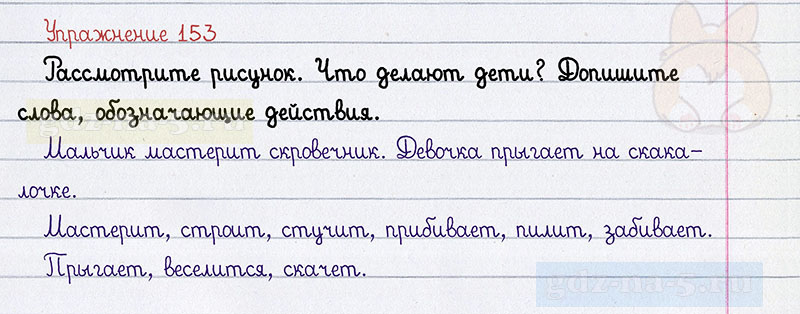 Упражнение 153
Рассмотрите рисунок. Что делают дети? Допишите
слова, обозначающие действия.
Мальчик мастерит скровечник. Девочка прыгает на скака-
лочке.
Мастерит, строит, стучит, прибивает, пилит, забивает.
Прыгает, веселится, скачет.
gdz-na-5.ru
gdz-na-5.ru